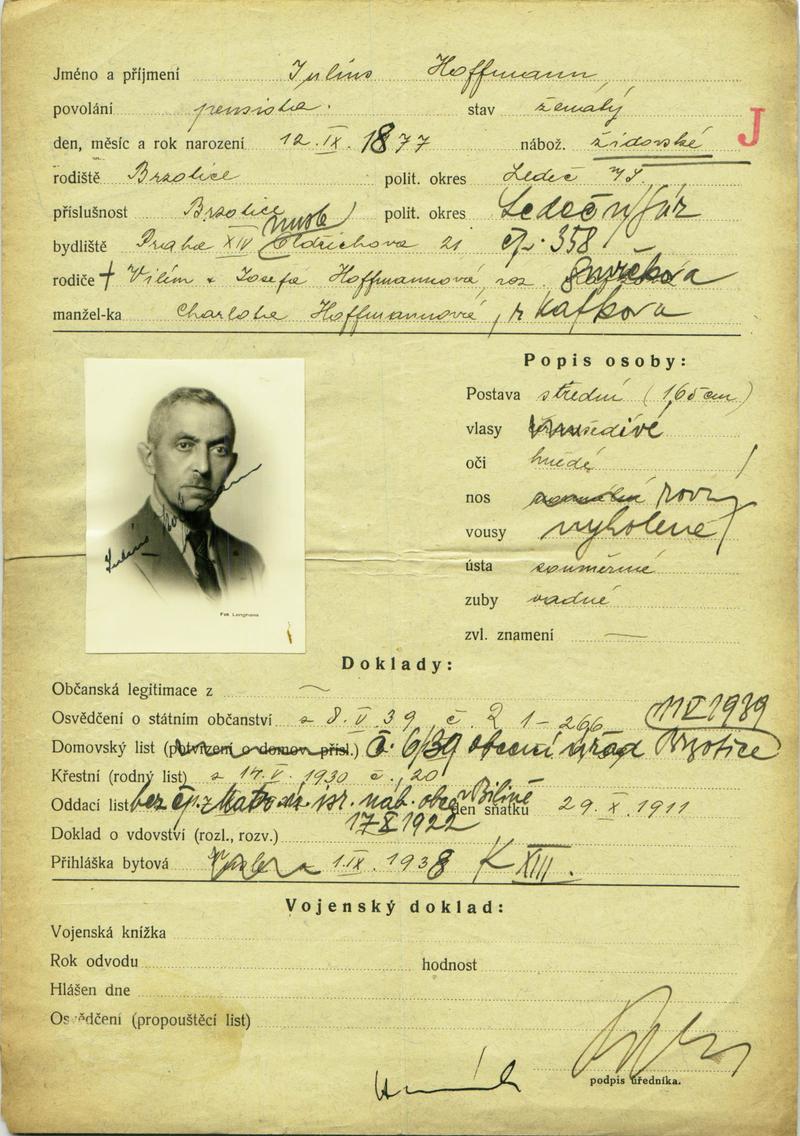 Jméno a příjmení Julius Hoffmann
povolání pensista. stav ženatý
den, měsíc a rok narození 12. IX. 1877 nábož. židovské J
rodiště Brzotice polit. okres Ledeč n/S.
příslušnost Brzotice polit. okres Ledeč n/Sáz
bydliště Praha XIV Nusle Oldřichova 21 čp. 358
rodiče † Vilém + Josefa Hoffmannová, roz.
manžel-ka Charlota Hoffmannová, r Kafkova
Popis osoby:
Postava střední (165 cm)
vlasy šedivé
oči hnědé
nos rovný
vousy vyholené
ústa souměrné
zuby vadné
zvl. znamení —
Julius Hoffmann
Fot. Langhans
Doklady:
Občanská legitimace z —
Osvědčení o státním občanství z 8. V. 39, č. 1-266
Domovský list (potvrzení o domov. přísl.) č. 6/39 obecní úřad Brzotice 11 V 1939
Křestní (rodný list) z 14. V. 1930 č. 20
Oddací list bez čp. z Matr. isr. náb. obce v Bílině den sňatku 29. X. 1911
17 X 1922
Doklad o vdovství (rozl., rozv.)
Přihláška bytová 1. IX. 1938 K XIII.
Vojenský doklad:
Vojenská knížka
Rok odvodu hodnost
Hlášen dne
Osvědčení (propouštěcí list)
podpis úředníka.